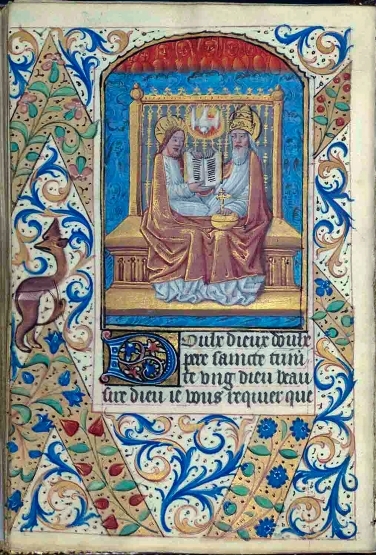 Doulx dieux doulx
pere saincte trini
te ung dieu beau
sire dieu ie vous requier que